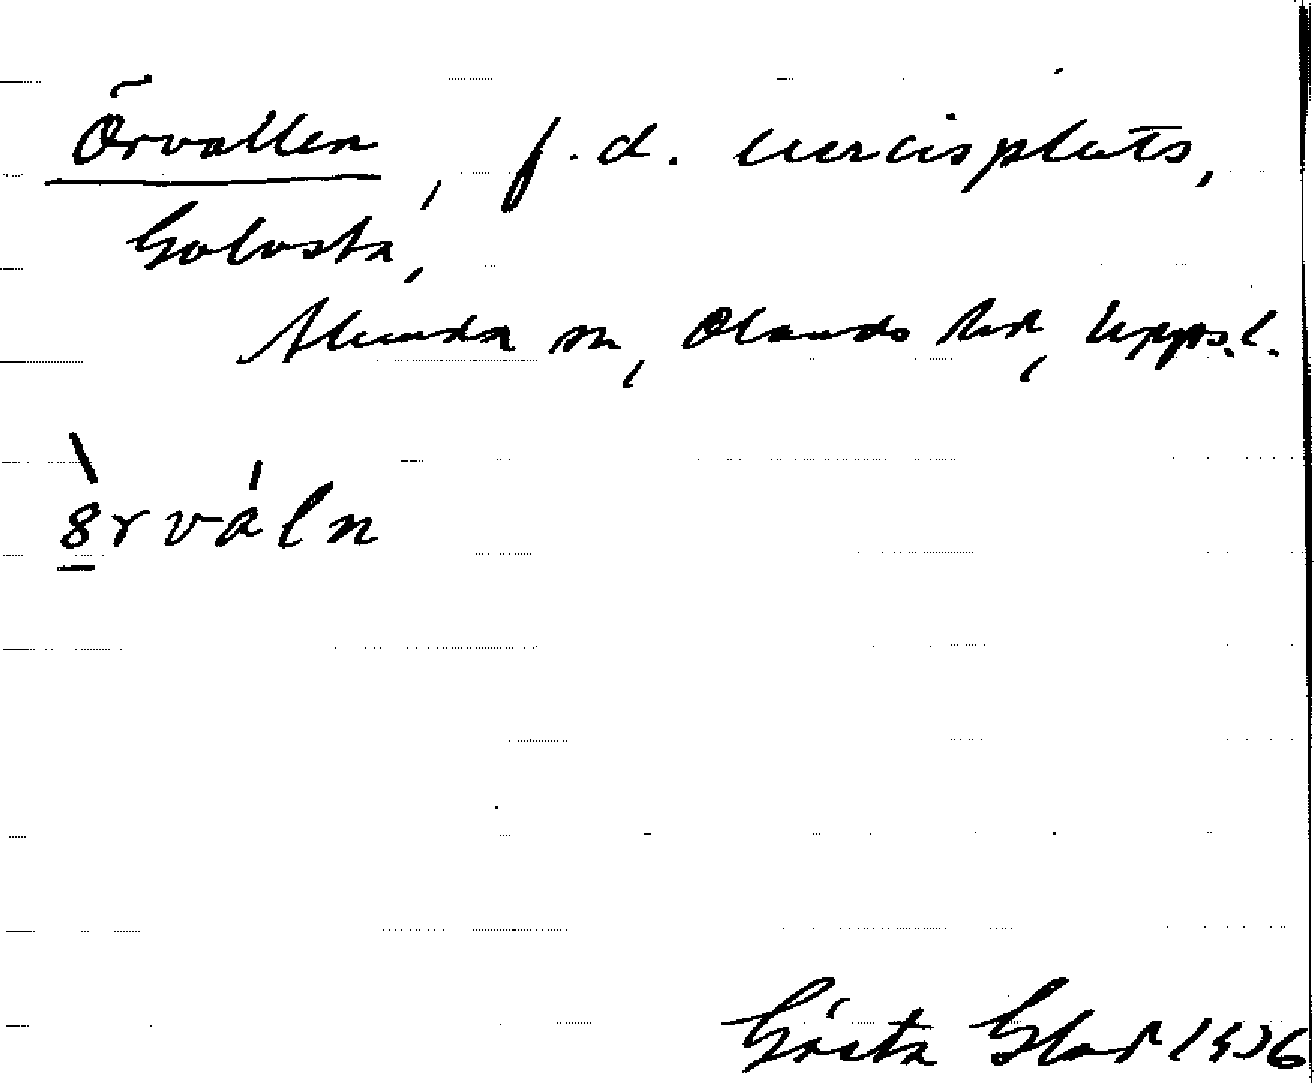 Örvallen, f. d. exercisplats,
Golvsta,
Alunda sn, Olands hd, Upps.l.
8̲̀rváln
Gösta Glad 1936